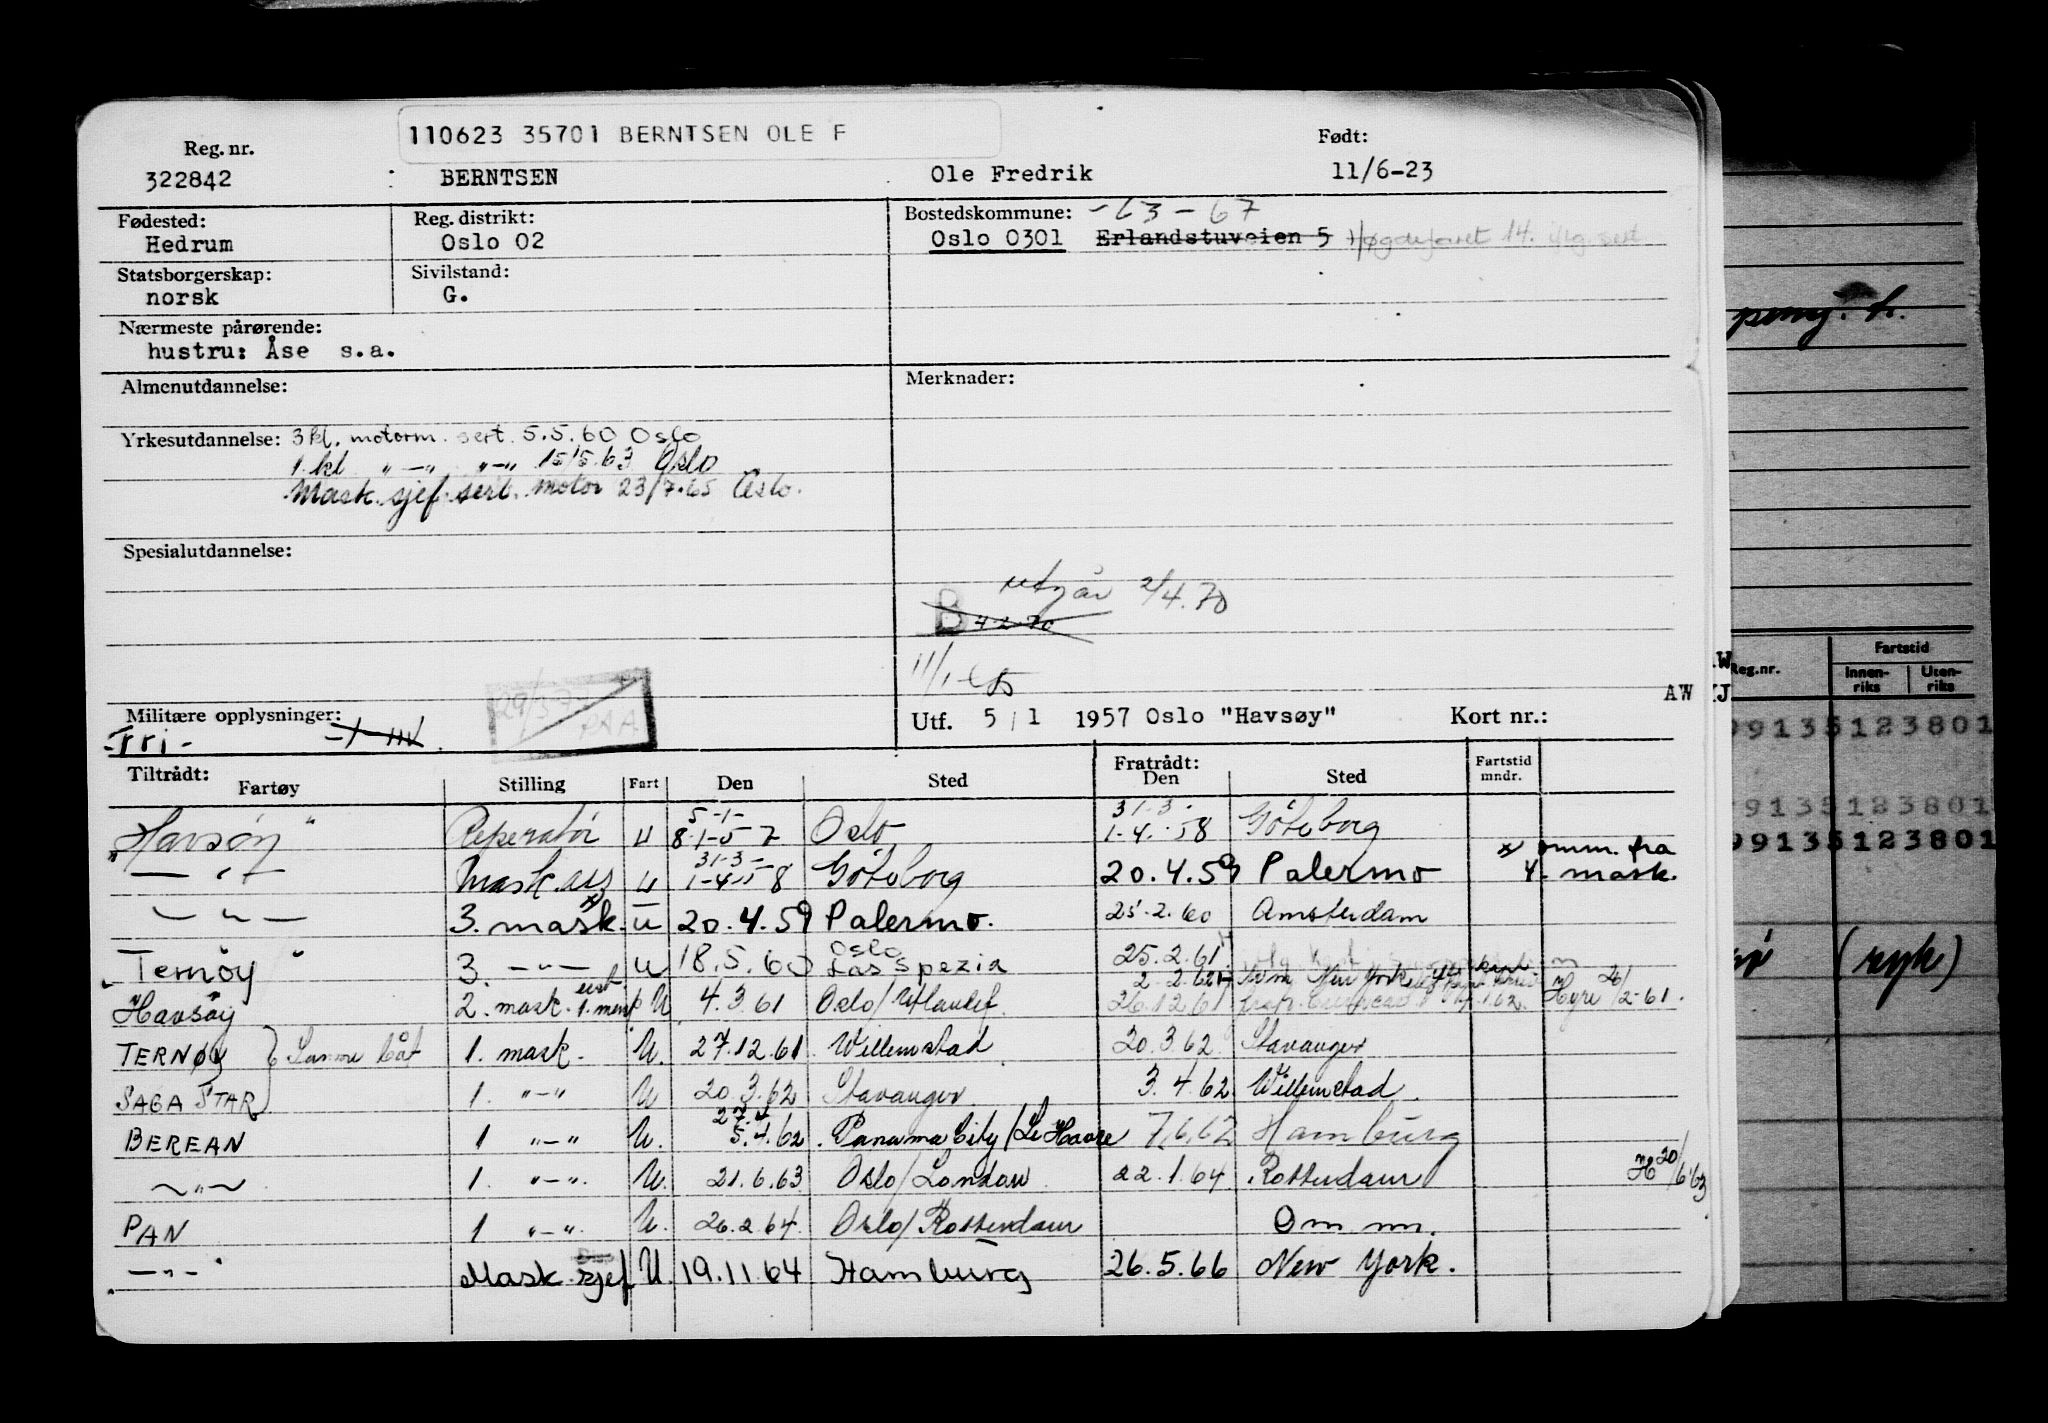 110623 35701 BERNTSEN OLE F
Reg. nr. Født:
322842 BERNTSEN Ole Fredrik 11/6-23
Fødested: Reg. distrikt: Bostedskommune: -63-67
Hedrum Oslo 02 Oslo 0301 Erlandstuveien 5
Statsborgerskap: Sivilstand:
norsk G.
Nærmeste pårørende:
hustru: Åse s.a.
Almenutdannelse: Merknader:
Yrkesutdannelse: 3 kl. motorm. sert. 5.5.60 Oslo
1. kl " — " " — " 15/5.63 Oslo
Mask.sjef.sert. motor 23/7.65 Oslo.
Spesialutdannelse:
utgår 2/4.70
B
11/1
Militære opplysninger: Utf. 5/1 1957 Oslo "Havsøy" Kort nr.: AW
-Fri-
Tiltrådt: Fratrådt: Fartstid
Fartøy Stilling Fart Den Sted Den Sted mndr.
5-1- 31-3-
"Havsøy" Reperatør U 8-1-57 Oslo 1-4-58 Göteborg
31-3-
— " — Mask.ass U 1-4-58 Göteborg 20.4.59 Palermo x/ omm. fra 4. mask.
— " — 3. mask. x/ U 20.4.59 Palermo. 25.2.60 Amsterdam
"Ternøy" 3. — " — U 18.5.60 Oslo Las Spezia 25.2.61
Havsøy 2. mask. 1. U 4.3.61 Oslo/ 26.12.61 Hyre 26/2-61.
TERNØY } Samme båt 1. mask. U. 27.12.61 Willemstad 20.3.62 Stavanger
SAGA STAR 1. " — " U 20.3.62 Stavanger. 3.4.62 Willemstad.
BEREAN 1 " — " U. 5.4.62. Panama City/Le Havre 7.6.62 Hamburg
— " — 1. " — " U. 21.6.63 Oslo/London 22.1.64 Rotterdam H 20/6'63
PAN 1 " — " U. 26.2.64. Oslo/Rotterdam Om mn.
— " — Mask.sjef U. 19.11.64 Hamburg 26.5.66 New York.
Reg.nr. Fartstid
Innen-riks Uten-riks
99135123801
99135123801
99135123801